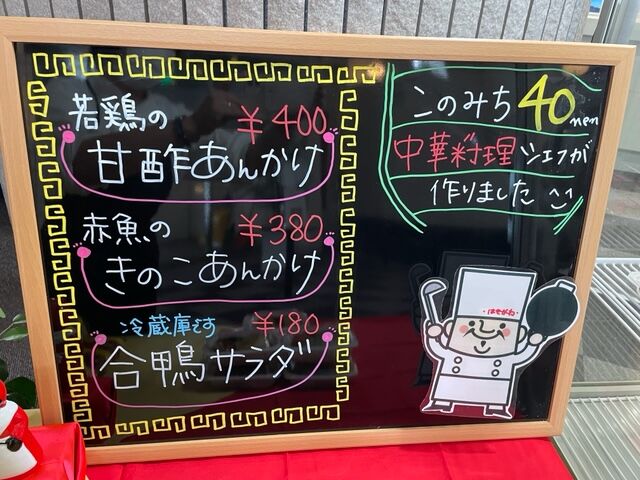 若鶏の ¥400
甘酢あんかけ
赤魚の ¥380
きのこあんかけ
冷蔵庫です ¥180
合鴨サラダ
このみち40nen
中華料理シェフが
作りました
はせがわ